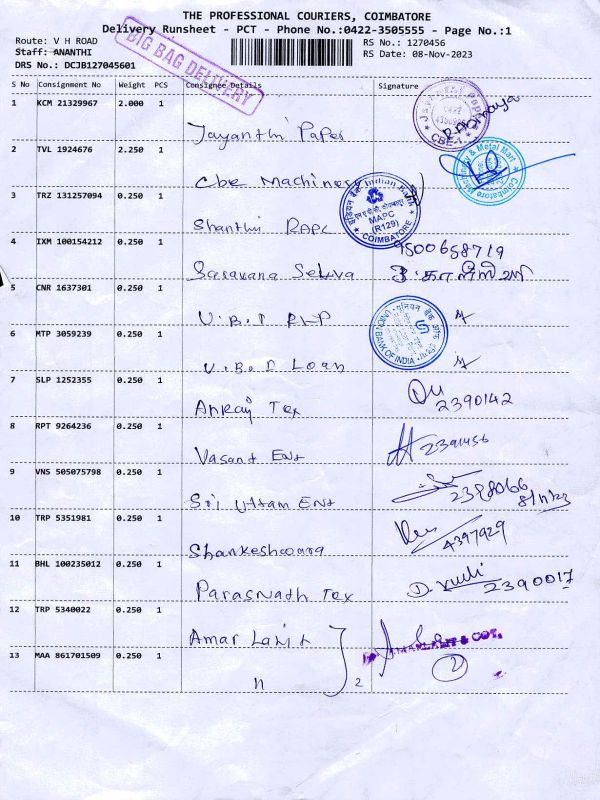 THE PROFESSIONAL COURIERS, COIMBATORE
Delivery Runsheet - PCT - Phone No.:0422-3505555 - Page No.:1
Route: V H ROAD
RS No.: 1270456
Staff: ANANTHI
RS Date: 08-Nov-2023
DRS No.: DCJB127045601
BIG BAG DELIVERY
S No Consignment No Weight PCS Consignee Details Signature
1 KCM 21329967 2.000 1
Jayanthi Paper
2 TVL 1924676 2.250 1
Cbe Machinery
Coimbatore Machinery & Metal Mart
3 TRZ 131257094 0.250 1
Shanthi RAPC
Indian Bank
MAPC
(R129)
COIMBATORE
4 IXM 100154212 0.250 1
Saravana Selva
9500658719
5 CNR 1637301 0.250 1
U.B.I RLP
UNION BANK OF INDIA
6 MTP 3059239 0.250 1
U.B.I Loan
7 SLP 1252355 0.250 1
Anraj Tex
2390142
8 RPT 9264236 0.250 1
Vasant Ent
2391456
9 VNS 505075798 0.250 1
Sri Uttam Ent
2398066
8/11/23
10 TRP 5351981 0.250 1
Shankeshwara
4397929
11 BHL 100235012 0.250 1
Parasnath Tex
2390017
12 TRP 5340022 0.250 1
Amar Lalit
13 MAA 861701509 0.250 1
11
2
2